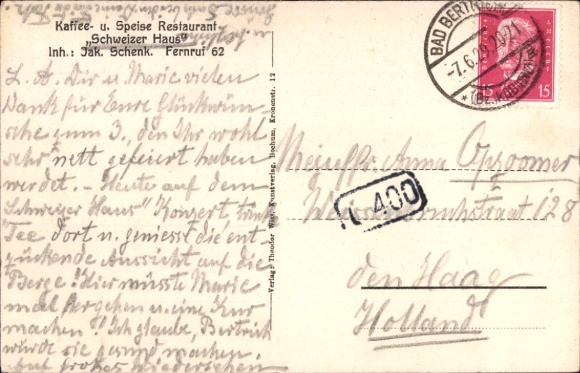 Kaffee- u. Speise Restaurant
„Schweizer Haus"
Inh.: Jak. Schenk. Fernruf 62
L. A. Dir u. Marie vielen
Dank für Eure Glückwün-
sche zum 3., den Ihr wohl
sehr nett gefeiert haben
werdet. – Heute auf dem
„Schweizer Haus" Konzert
Tee dort u. geniesst die ent-
zückende Aussicht auf die
Berge! Hier müsste Marie
mal hergehen u. eine Kur
machen! Ich glaube, Bertrich
würde sie gesund machen.
Auf frohes Wiedersehen
Verlag: Theodor Kunstverlag, Bochum, Kronenstr. 12
BAD BERTRICH
-7.6.29.20-21
* (BZ. KOBLENZ)
DEUTSCHES REICH
15
L 400
Anna Opzoomer
128
den Haag
Holland